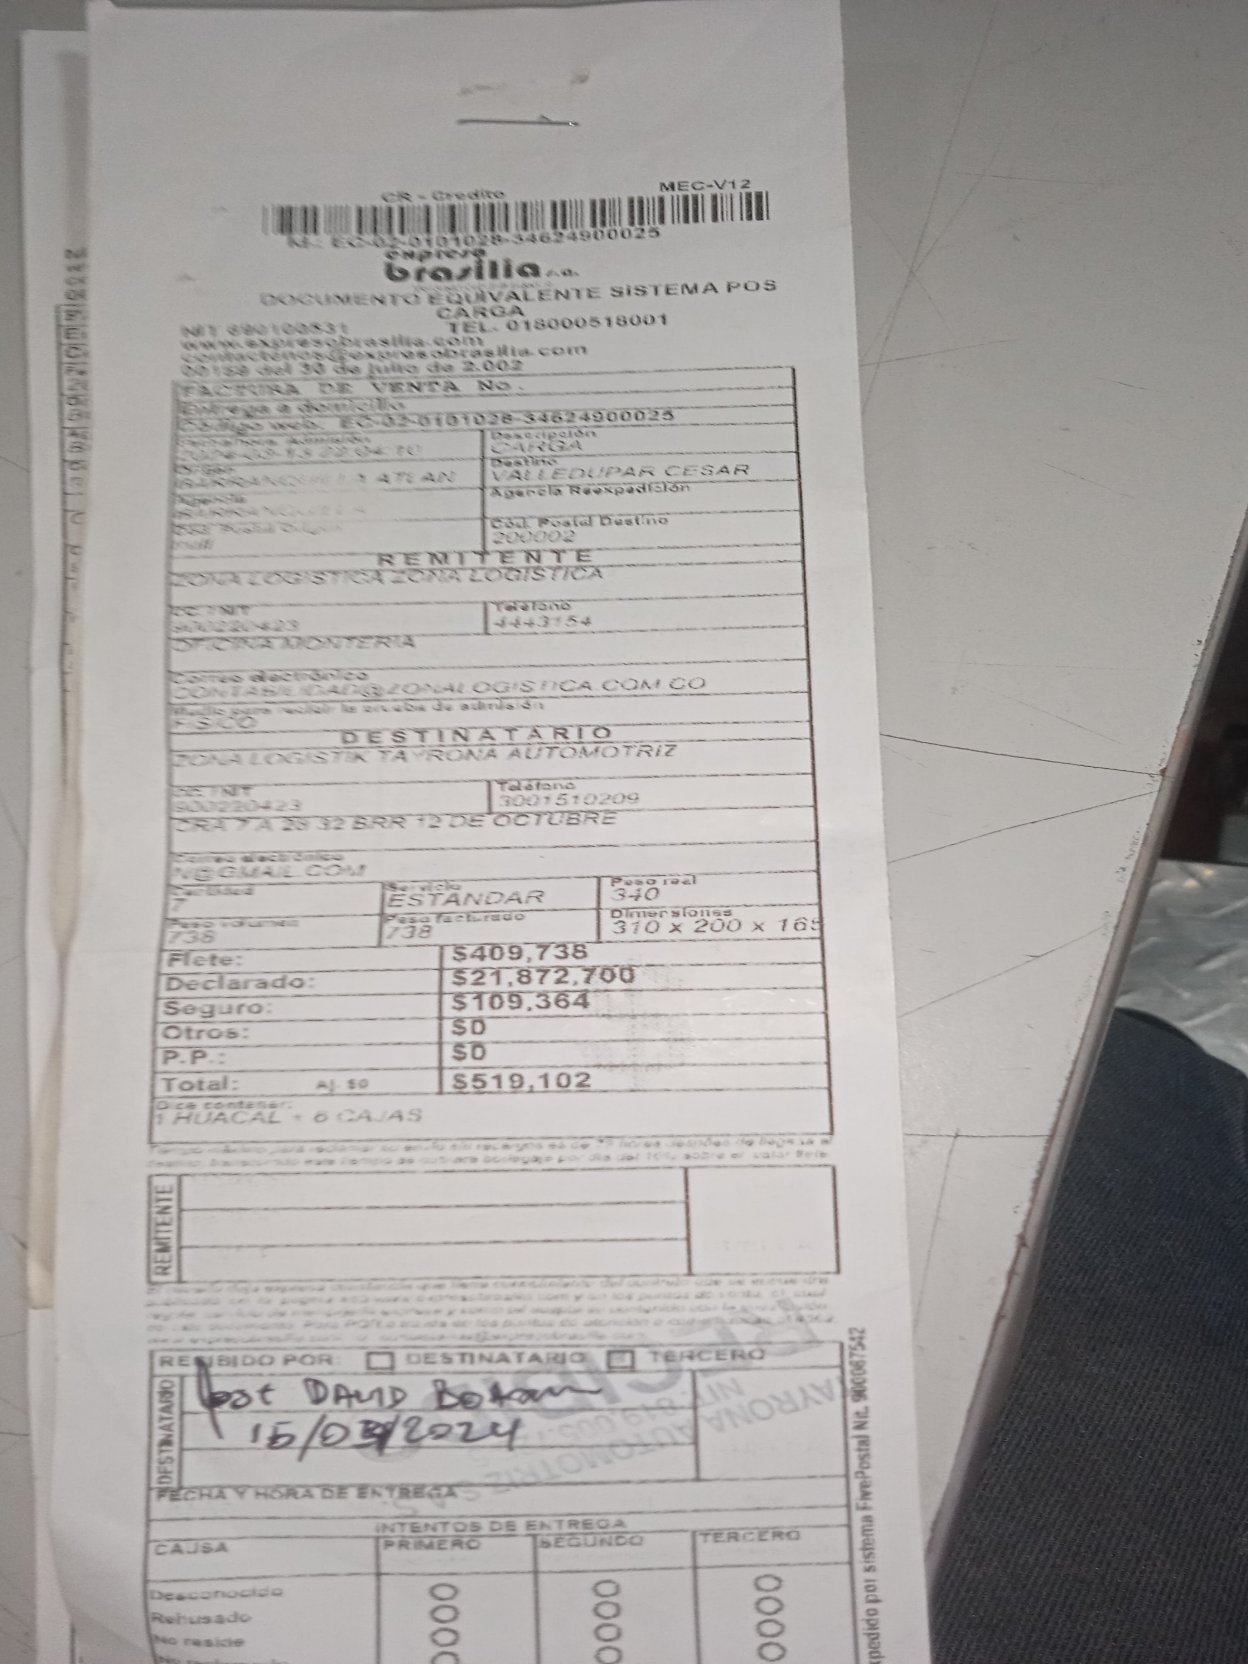 CR - Credito MEC-V12
M.: EC-02-0101028-34624900025
expreso
brasilia s.a.
DOCUMENTO EQUIVALENTE SISTEMA POS
CARGA
NIT 890100531 TEL. 018000518001
www.expresobrasilia.com
contactenos@expresobrasilia.com
00156 del 30 de julio de 2.002
FACTURA DE VENTA No.
Entrega a domicilio
Código web. EC-02-0101028-34624900025
Admisión Descripción
CARGA
Origen Destino
BARRANQUILLA ATLAN VALLEDUPAR CESAR
Agencia Agencia Reexpedición
BARRANQUILLA
Cód. Postal Origen Cód. Postal Destino
null 200002
REMITENTE
ZONA LOGISTICA ZONA LOGISTICA
CC / NIT Teléfono
900220423 4443154
OFICINA MONTERIA
Correo electrónico
CONTABILIDAD@ZONALOGISTICA.COM.CO
Medio para recibir la prueba de admisión
FISICO
DESTINATARIO
ZONA LOGISTIK TAYRONA AUTOMOTRIZ
CC / NIT Teléfono
900220423 3001510209
CRA 7 A 28 32 BRR 12 DE OCTUBRE
Correo electrónico
N@GMAIL.COM
Cantidad Servicio Peso real
7 ESTÁNDAR 340
Peso volumen Peso facturado Dimensiones
738 738 310 x 200 x 165
Flete: $409,738
Declarado: $21,872,700
Seguro: $109,364
Otros: $0
P.P.: $0
Total: Aj. $0 $519,102
Dice contener:
1 HUACAL + 6 CAJAS
REMITENTE
RECIBIDO POR: DESTINATARIO TERCERO
DESTINATARIO
DAVID
15/03/2024
TAYRONA
AUTOMOTRIZ
FECHA Y HORA DE ENTREGA
INTENTOS DE ENTREGA
CAUSA PRIMERO SEGUNDO TERCERO
Desconocido
Rehusado
No reside
xpedido por sistema FivePostal Nit. 900067542